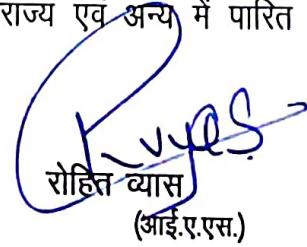 राज्य एवं अन्य में पारित
रोहित व्यास
(आई.ए.एस.)